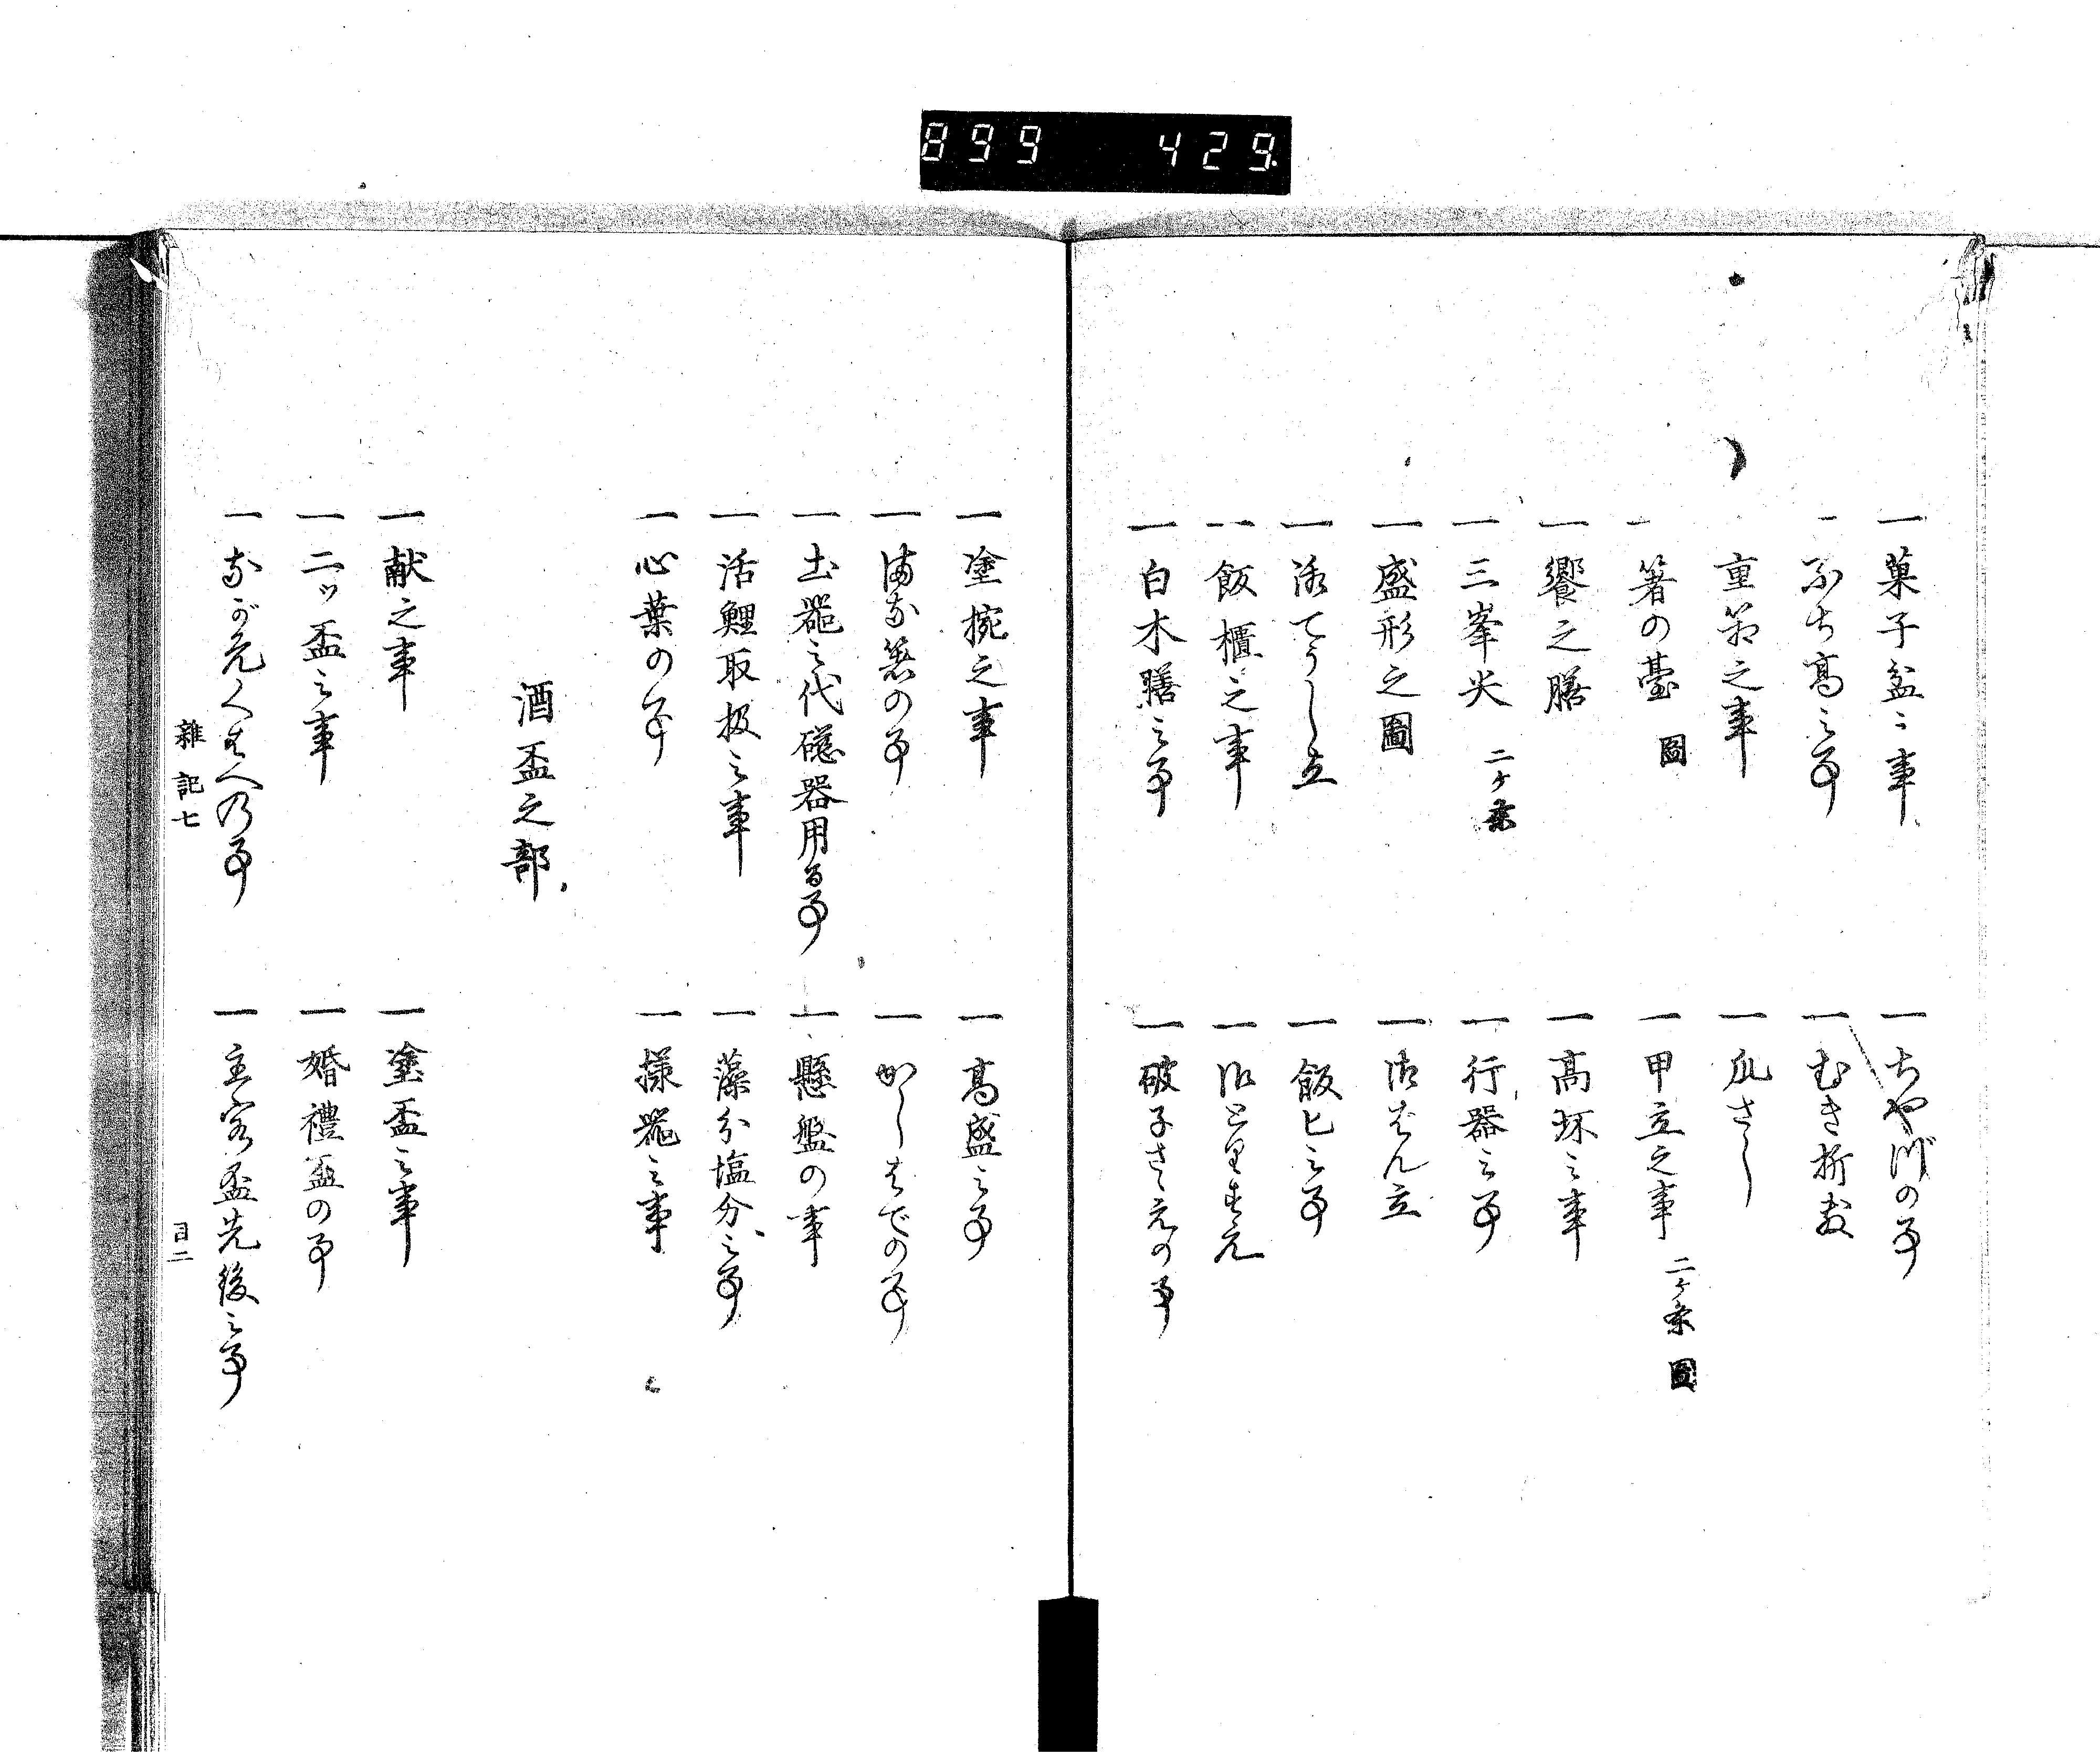 899 429
一菓子盆之事
一ちやつの事
一ふち高之事
一むき折敷
重箱之事
一瓜さし
一箸の臺 圖
一甲立之事 二ケ条 圖
一饗之膳
一高坏之事
一三峯尖 二ケ条
一行器之事
一盛形之圖
一御はん立
一湯てうし立
一飯匕之事
一飯櫃之事
一白木膳之事
一破子さゝえの事
一塗椀之事
一高盛之事
一まな箸の事
一かいしきの事
一土器之代磁器用る事
一懸盤の事
一活鯉取扱之事
一藻分塩分之事
一心葉の事
一様器之事
酒盃之部
一献之事
一塗盃之事
一二ツ盃之事
一婚禮盃の事
一主客盃先後之事
雜記七
目二